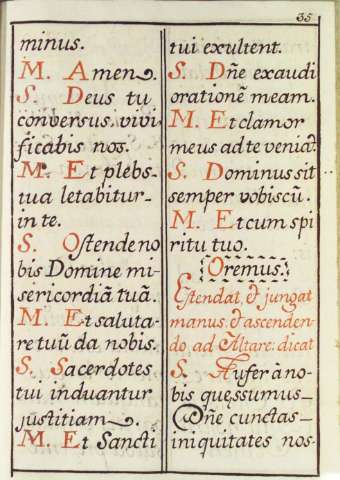 35
minus.
M. Amen.
S. Deus tu
conversus vivi
ficabis nos.
M. Et plebs
tua letabitur
in te.
S. Ostende no
bis Domine mi-
sericordiā tuā.
M. Et saluta-
re tuū da nobis.
S. Sacerdotes
tui induantur
justitiam.
M. Et Sancti
tui exultent.
S. Dñe exaudi
orationē meam.
M. Et clamor
meus ad te veniat.
S. Dominus sit
semper vobiscū.
M. Et cum spi
ritu tuo.
Oremus.
Estendat, & jungat
manus. & ascenden-
do ad Altare: dicat
S. Aufer à no-
bis quęssumus
Dñe cunctas
iniquitates nos-